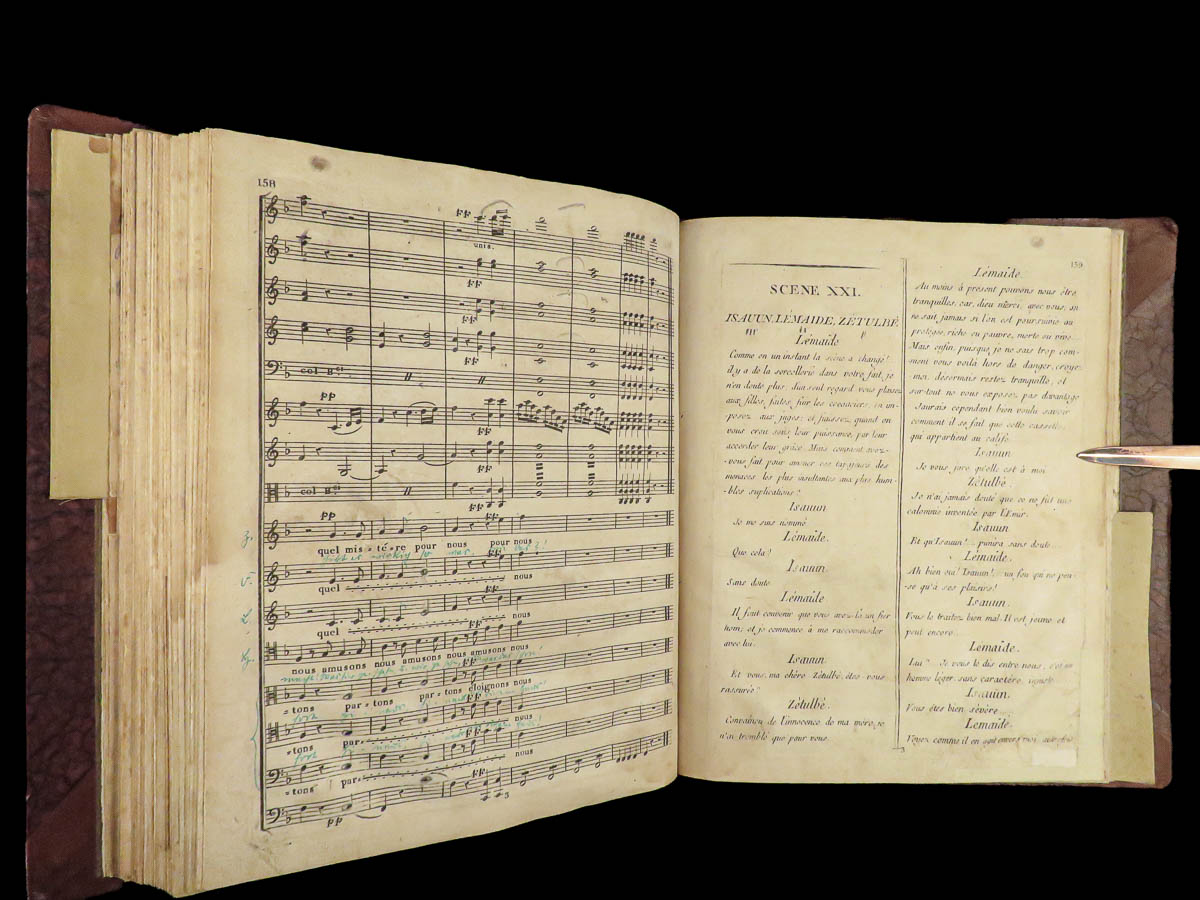 158
unis.
FF
FF
FF
FF
FF
col Bº
PP
FF
FF
col Bº
FF
PP
FF
Z.
quel mis = té = re pour nous pour nous
FF
V.
quel nous
FF
L.
quel nous
nous amusons nous amusons nous amusons nous
FF
= tons par = tons par = tons éloignons nous
FF
= tons par = nous
FF
= tons par = nous
PP
FF
3
SCENE XXI.
ISAUUN, LÉMAIDE, ZÉTULBÉ.
Lémaïde
Comme en un instant la scène a changé!
il y a de la sorcellerie dans votre fait, je
n'en doute plus; d'un seul regard vous plaisez
aux filles, faites fuir les créanciers, en im-
posez aux juges; et finissez, quand on
vous crou sous leur puissance, par leur
accorder leur grâce. Mais comment avez-
-vous fait pour amener ces tapageurs des
menaces les plus insultantes aux plus hum-
-bles suplications?
Isauun
Je me suis nommé
Lémaïde.
Que cela?
Isauun.
Sans doute
Lémaïde
Il faut convenir que vous avez-là un fier
nom; et je commence à me raccommoder
avec lui.
Isauun
Et vous, ma chère Zétulbé, êtes-vous
rassurée?
Zétulbé.
Convaincu de l'innocence de ma mère, je
n'ai tremblé que pour vous.
3
159
Lémaïde.
Au moins à présent pouvons nous être
tranquilles, car, dieu merci, avec vous, on
ne sait jamais si l'on est poursuivie ou
protégée, riche ou pauvre, morte ou vive...
Mais enfin, puisque je ne sais trop com-
ment vous voilà hors de danger, croyez
moi, désormais restez tranquille, et
sur-tout ne vous exposez pas davantage
J'aurais cependant bien voulu savoir
comment il se fait que cette cassette,
qui appartient au calife
Isauun
Je vous jure qu'elle est à moi.
Zétulbé.
Je n'ai jamais douté que ce ne fut une
calomnie inventée par l'Emir.
Isauun
Et qu'Isauun!... punira sans doute...
Lémaïde.
Ah bien oui! Isauun!... un fou qui ne pen-
se qu'à ses plaisirs!
Isauun.
Vous le traitez bien mal. Il est jeune et
peut encore...
Lemaide.
Lui? Je vous le dis entre nous, c'est un
homme léger, sans caractère,
Isauun.
Vous êtes bien sévère...
Lemaide.
Voyez comme il en agit envers moi